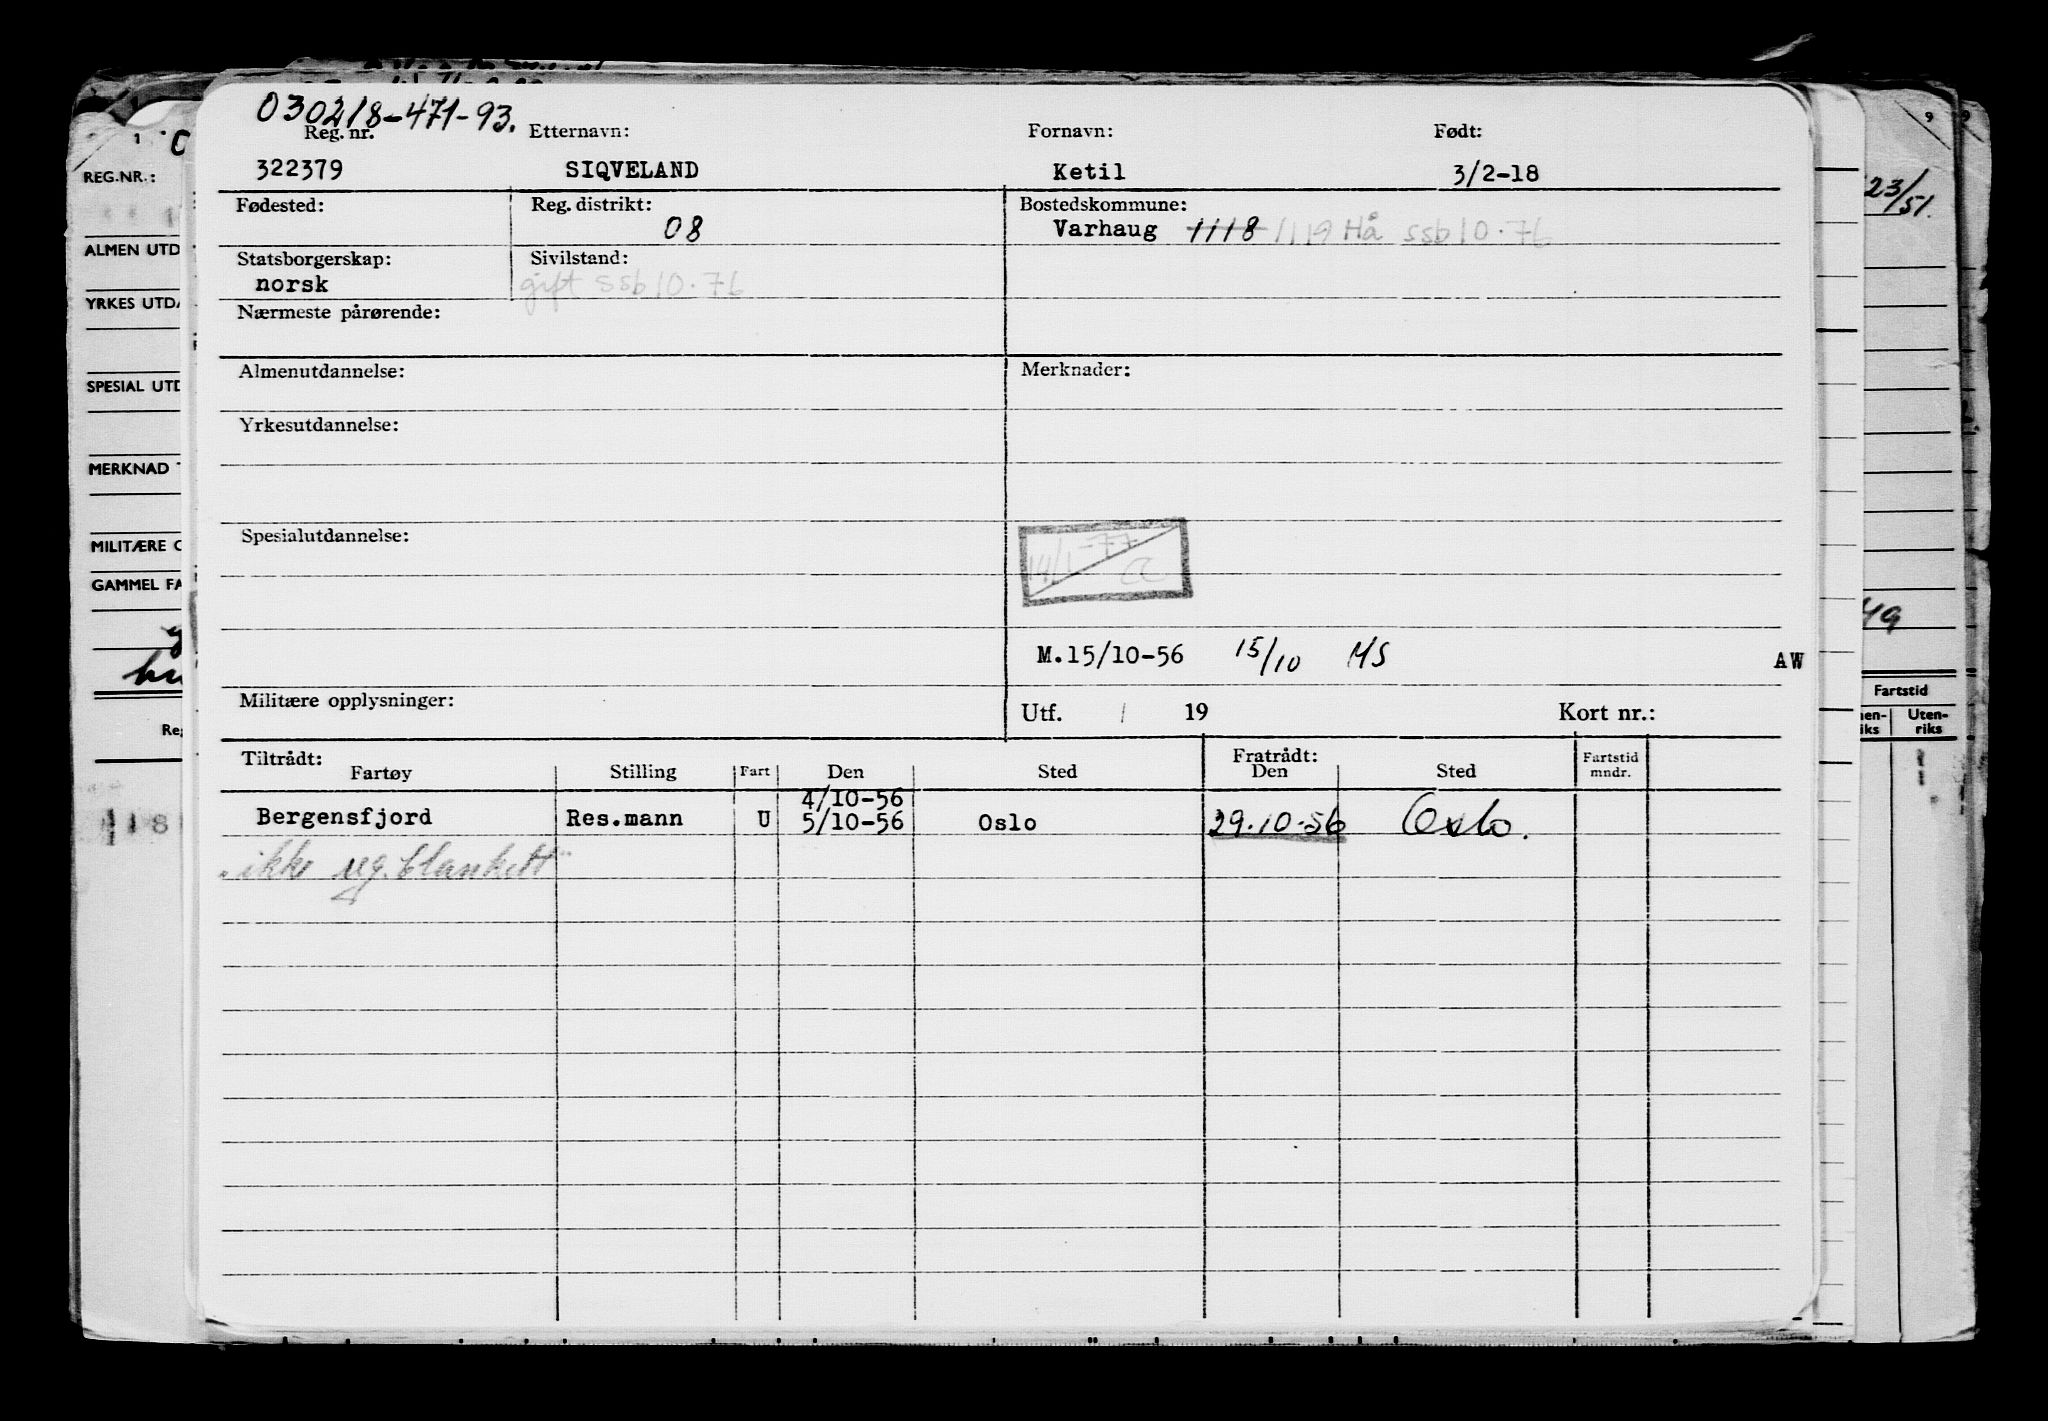 030218-471-93.
Reg. nr. Etternavn: Fornavn: Født:
322379 SIQVELAND Ketil 3/2-18
Fødested: Reg. distrikt: Bostedskommune:
08 Varhaug 1118 1119 Hå ssb 10.76
Statsborgerskap: Sivilstand:
norsk gift ssb 10.76
Nærmeste pårørende:
Almenutdannelse: Merknader:
Yrkesutdannelse:
Spesialutdannelse:
14/1-77
M.15/10-56 15/10 HS AW
Militære opplysninger: Utf. / 19 Kort nr.:
Tiltrådt: Fratrådt: Fartstid
Fartøy Stilling Fart Den Sted Den Sted mndr.
4/10-56
Bergensfjord Res.mann U 5/10-56 Oslo 29.10.56 Oslo.
"ikke reg. blankett"
1
REG.NR.:
ALMEN UTD
YRKES UTDA
SPESIAL UTD
MERKNAD
MILITÆRE O
GAMMEL FA
Reg
118
9
9
23/51.
49
Fartstid
nen- Uten-
iks riks